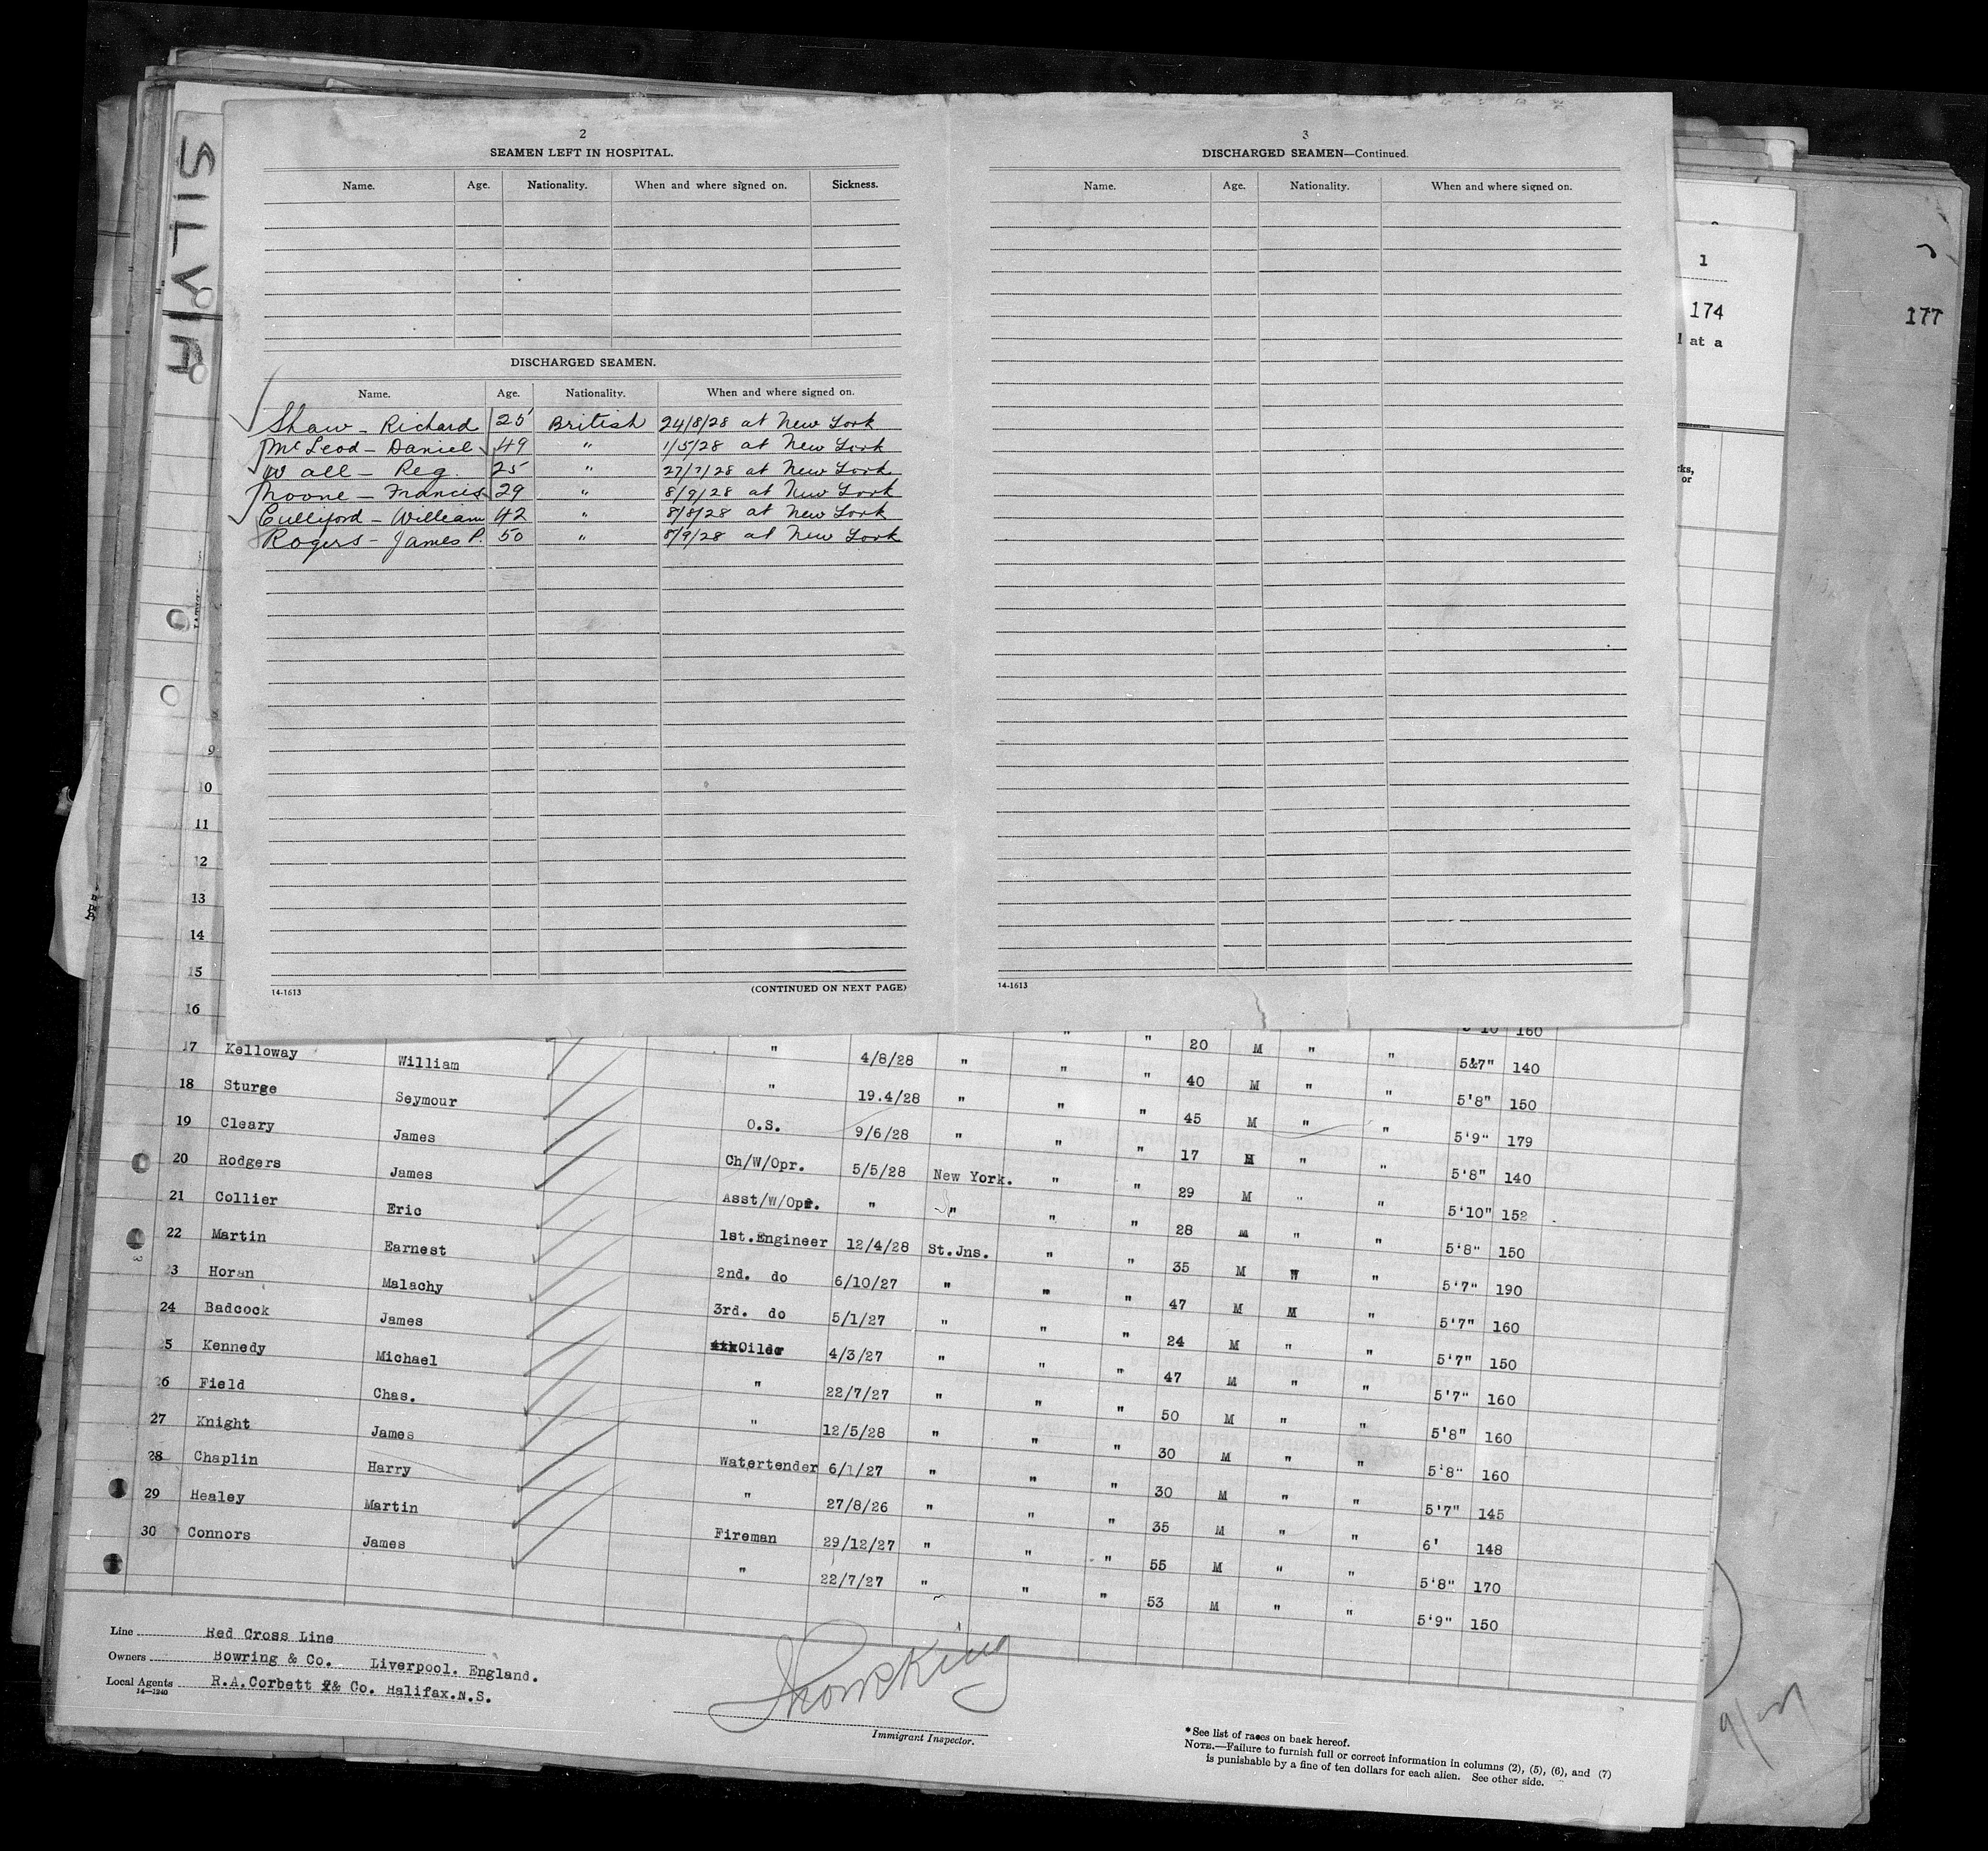 SILVIA
2
SEAMEN LEFT IN HOSPITAL.
Name. Age. Nationality. When and where signed on. Sickness.
DISCHARGED SEAMEN.
Name. Age. Nationality. When and where signed on.
Shaw - Richard 25 British 24/8/28 at New York
McLeod - Daniel 49 " 1/5/28 at New York
Wall - Reg. 25 " 27/7/28 at New York
Noone - Francis 29 " 8/9/28 at New York
Culliford - William 42 " 8/8/28 at New York
Rogers - James P. 50 " 8/9/28 at New York
14-1613 (CONTINUED ON NEXT PAGE)
3
DISCHARGED SEAMEN—Continued.
Name. Age. Nationality. When and where signed on.
14-1613
1
174
at a
177
9
10
11
12
13
14
15
16 5'10 160
17 Kelloway William " 4/8/28 " " " 20 M " " 5'7" 140
18 Sturge Seymour " 19.4/28 " " " 40 M " " 5'8" 150
19 Cleary James O.S. 9/6/28 " " " 45 M " " 5'9" 179
20 Rodgers James Ch/W/Opr. 5/5/28 New York. " " 17 M " " 5'8" 140
21 Collier Eric Asst/W/Opr. " " " " 29 M " " 5'10" 152
22 Martin Earnest 1st.Engineer 12/4/28 St.Jns. " " 28 M " " 5'8" 150
23 Horan Malachy 2nd. do 6/10/27 " " " 35 M W " 5'7" 190
24 Badcock James 3rd. do 5/1/27 " " " 47 M M " 5'7" 160
25 Kennedy Michael Oiler 4/3/27 " " " 24 M " " 5'7" 150
26 Field Chas. " 22/7/27 " " " 47 M " " 5'7" 160
27 Knight James " 12/5/28 " " " 50 M " " 5'8" 160
28 Chaplin Harry Watertender 6/1/27 " " " 30 M " " 5'8" 160
29 Healey Martin " 27/8/26 " " " 30 M " " 5'7" 145
30 Connors James Fireman 29/12/27 " " " 35 M " " 6' 148
" 22/7/27 " " " 55 M " " 5'8" 170
53 M " " 5'9" 150
Line Red Cross Line
Owners Bowring & Co. Liverpool. England.
Local Agents R.A.Corbett & Co. Halifax.N.S.
14—1240
Immigrant Inspector.
*See list of races on back hereof.
NOTE.—Failure to furnish full or correct information in columns (2), (5), (6), and (7)
is punishable by a fine of ten dollars for each alien. See other side.